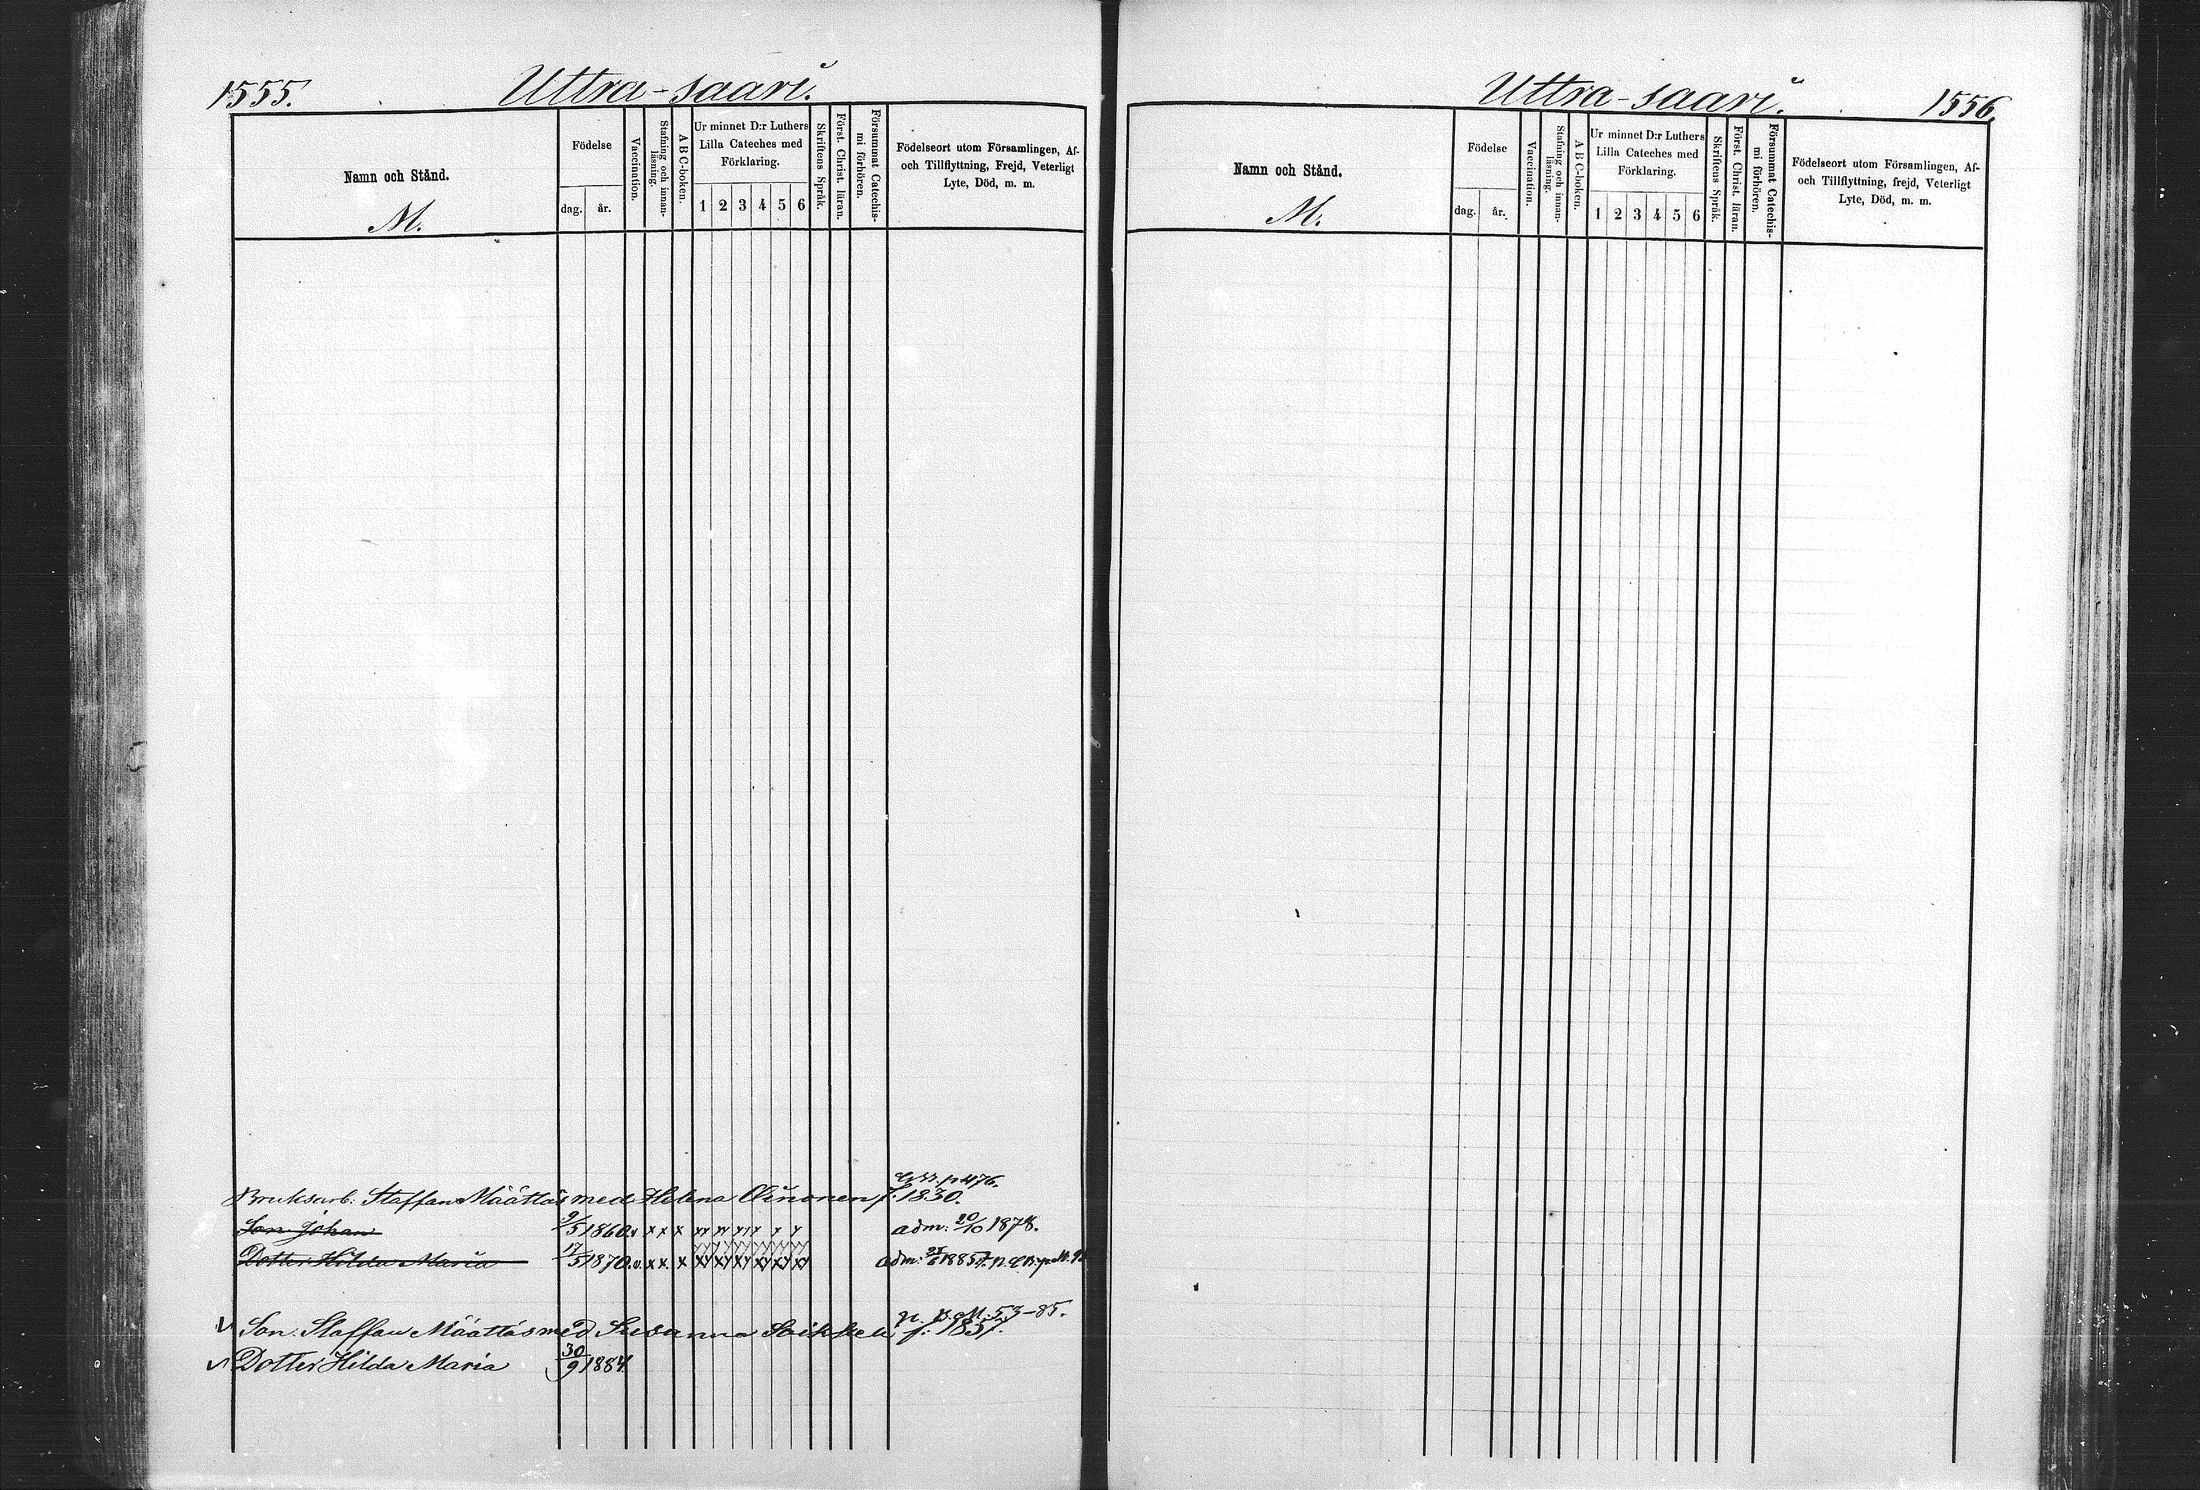 1555.
Uttra-saari.
Namn och Stånd.
M.
Födelse
dag.
år.
Vaccination.
Stafning och innan-
läsning.
A B C-boken.
Ur minnet D:r Luthers
Lilla Cateches med
Förklaring.
1 2 3 4 5 6
Skriftens Språk.
Först. Christ. läran.
Försummat Catechis-
mi förhören.
Födelseort utom Församlingen, Af-
och Tillflyttning, Frejd, Veterligt
Lyte, Död, m. m.
Bruksarb. Staffan Määttäs med Helena Oinonen f. 1830.
Son Johan 9/5 1860. v x x x adm: 20/10 1878.
Dotter Hilda Maria 17/5 1870. v. x x x adm: 1885
M. 53-85.
Son Staffan Määttäs med Susanna f. 1857.
Dotter Hilda Maria 30/9 1884.
Uttra-saari.
1556.
Namn och Stånd.
M.
Födelse
dag.
år.
Vaccination.
Stafning och innan-
läsning.
A B C-boken.
Ur minnet D:r Luthers
Lilla Cateches med
Förklaring.
1 2 3 4 5 6
Skriftens Språk.
Först. Christ. läran.
Försummat Catechis-
mi förhören.
Födelseort utom Församlingen, Af-
och Tillflyttning, frejd, Veterligt
Lyte, Död, m. m.